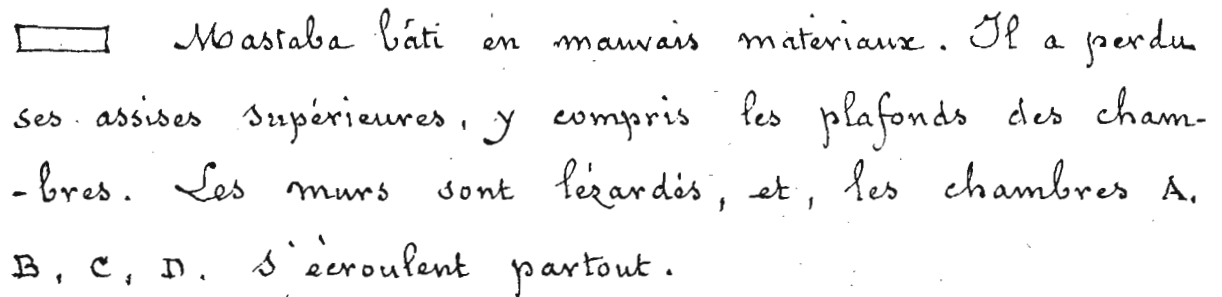 Mastaba bâti en mauvais matériaux. Il a perdu
ses assises supérieures, y compris les plafonds des cham-
-bres. Les murs sont lézardés, et, les chambres A.
B, C, D. s'écroulent partout.